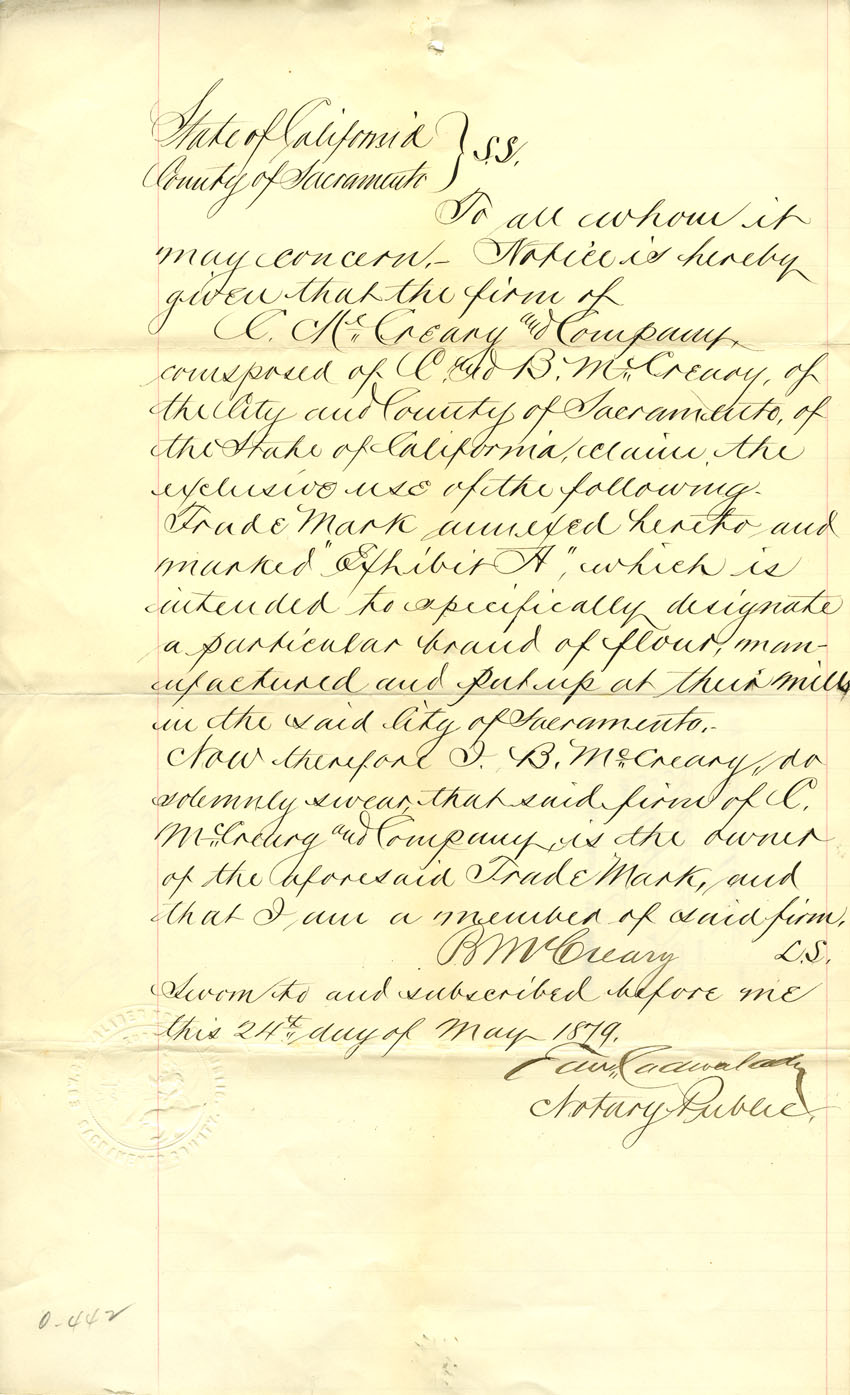 State of California } S.S.
County of Sacramento
To all whom it
may concern.- Notice is hereby
given that the firm of
C. McCreary and Company,
composed of C. and B. McCreary, of
the City and County of Sacramento, of
the State of California, claim the
exclusive use of the following
Trade Mark annexed hereto and
marked "Exhibit A", which is
intended to specifically designate
a particular brand of flour, man-
ufactured and put up at their mills
in the said City of Sacramento.-
Now therefore I. B. McCreary, do
solemnly swear, that said firm of C.
McCreary and Company, is the owner
of the aforesaid Trade Mark, and
that I am a member of said firm.
B McCreary L.S.
Sworn to and subscribed before me
this 24th day of May 1879.
Edw. Cadwalader
Notary Public.
SACRAMENTO COUNTY
0-442